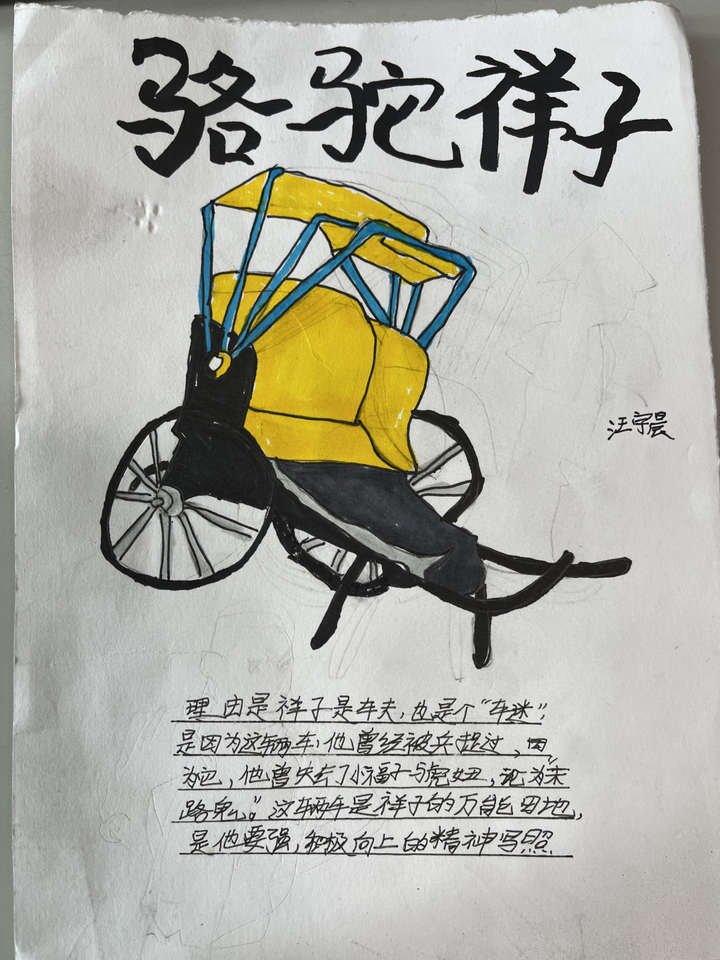 骆驼祥子
汪宇晨
理由是祥子是车夫，也是个“车迷”，
是因为这辆车，他曾经被兵捉过，因
为它，他曾失去了小福子与虎妞，沦为“末
路鬼。”这辆车是祥子的万能田地，
是他要强，积极向上的精神写照